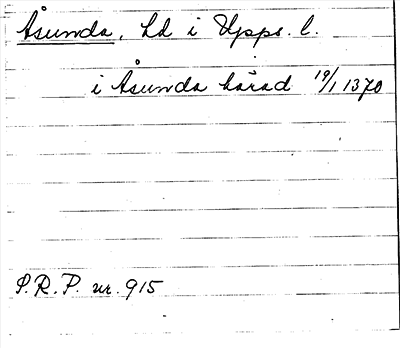 Åsunda, hd i Upps. l.
i Åsunda härad 19/1 1370
P.R.P. nr. 915